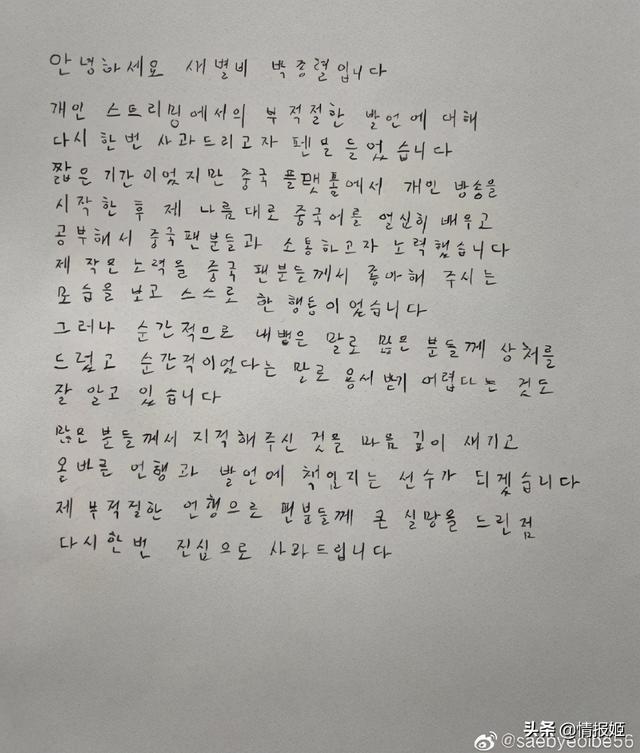 안녕하세요 새별비 박종렬입니다
개인 스트리밍에서의 부적절한 발언에 대해
다시 한번 사과드리고자 펜을 들었습니다
짧은 기간이었지만 중국 플랫폼에서 개인 방송을
시작한 후 제 나름대로 중국어를 열심히 배우고
공부해서 중국팬분들과 소통하고자 노력했습니다
제 작은 노력을 중국 팬분들께서 좋아해 주시는
모습을 보고 스스로 한 행동이었습니다
그러나 순간적으로 내뱉은 말로 많은 분들께 상처를
드렸고 순간적이었다는 말로 용서받기 어렵다는 것도
잘 알고 있습니다
많은 분들께서 지적해주신 것을 마음 깊이 새기고
올바른 언행과 발언에 책임지는 선수가 되겠습니다
제 부적절한 언행으로 팬분들께 큰 실망을 드린점
다시한번 진심으로 사과드립니다
头条 @情报姬
@saebyeolbe56